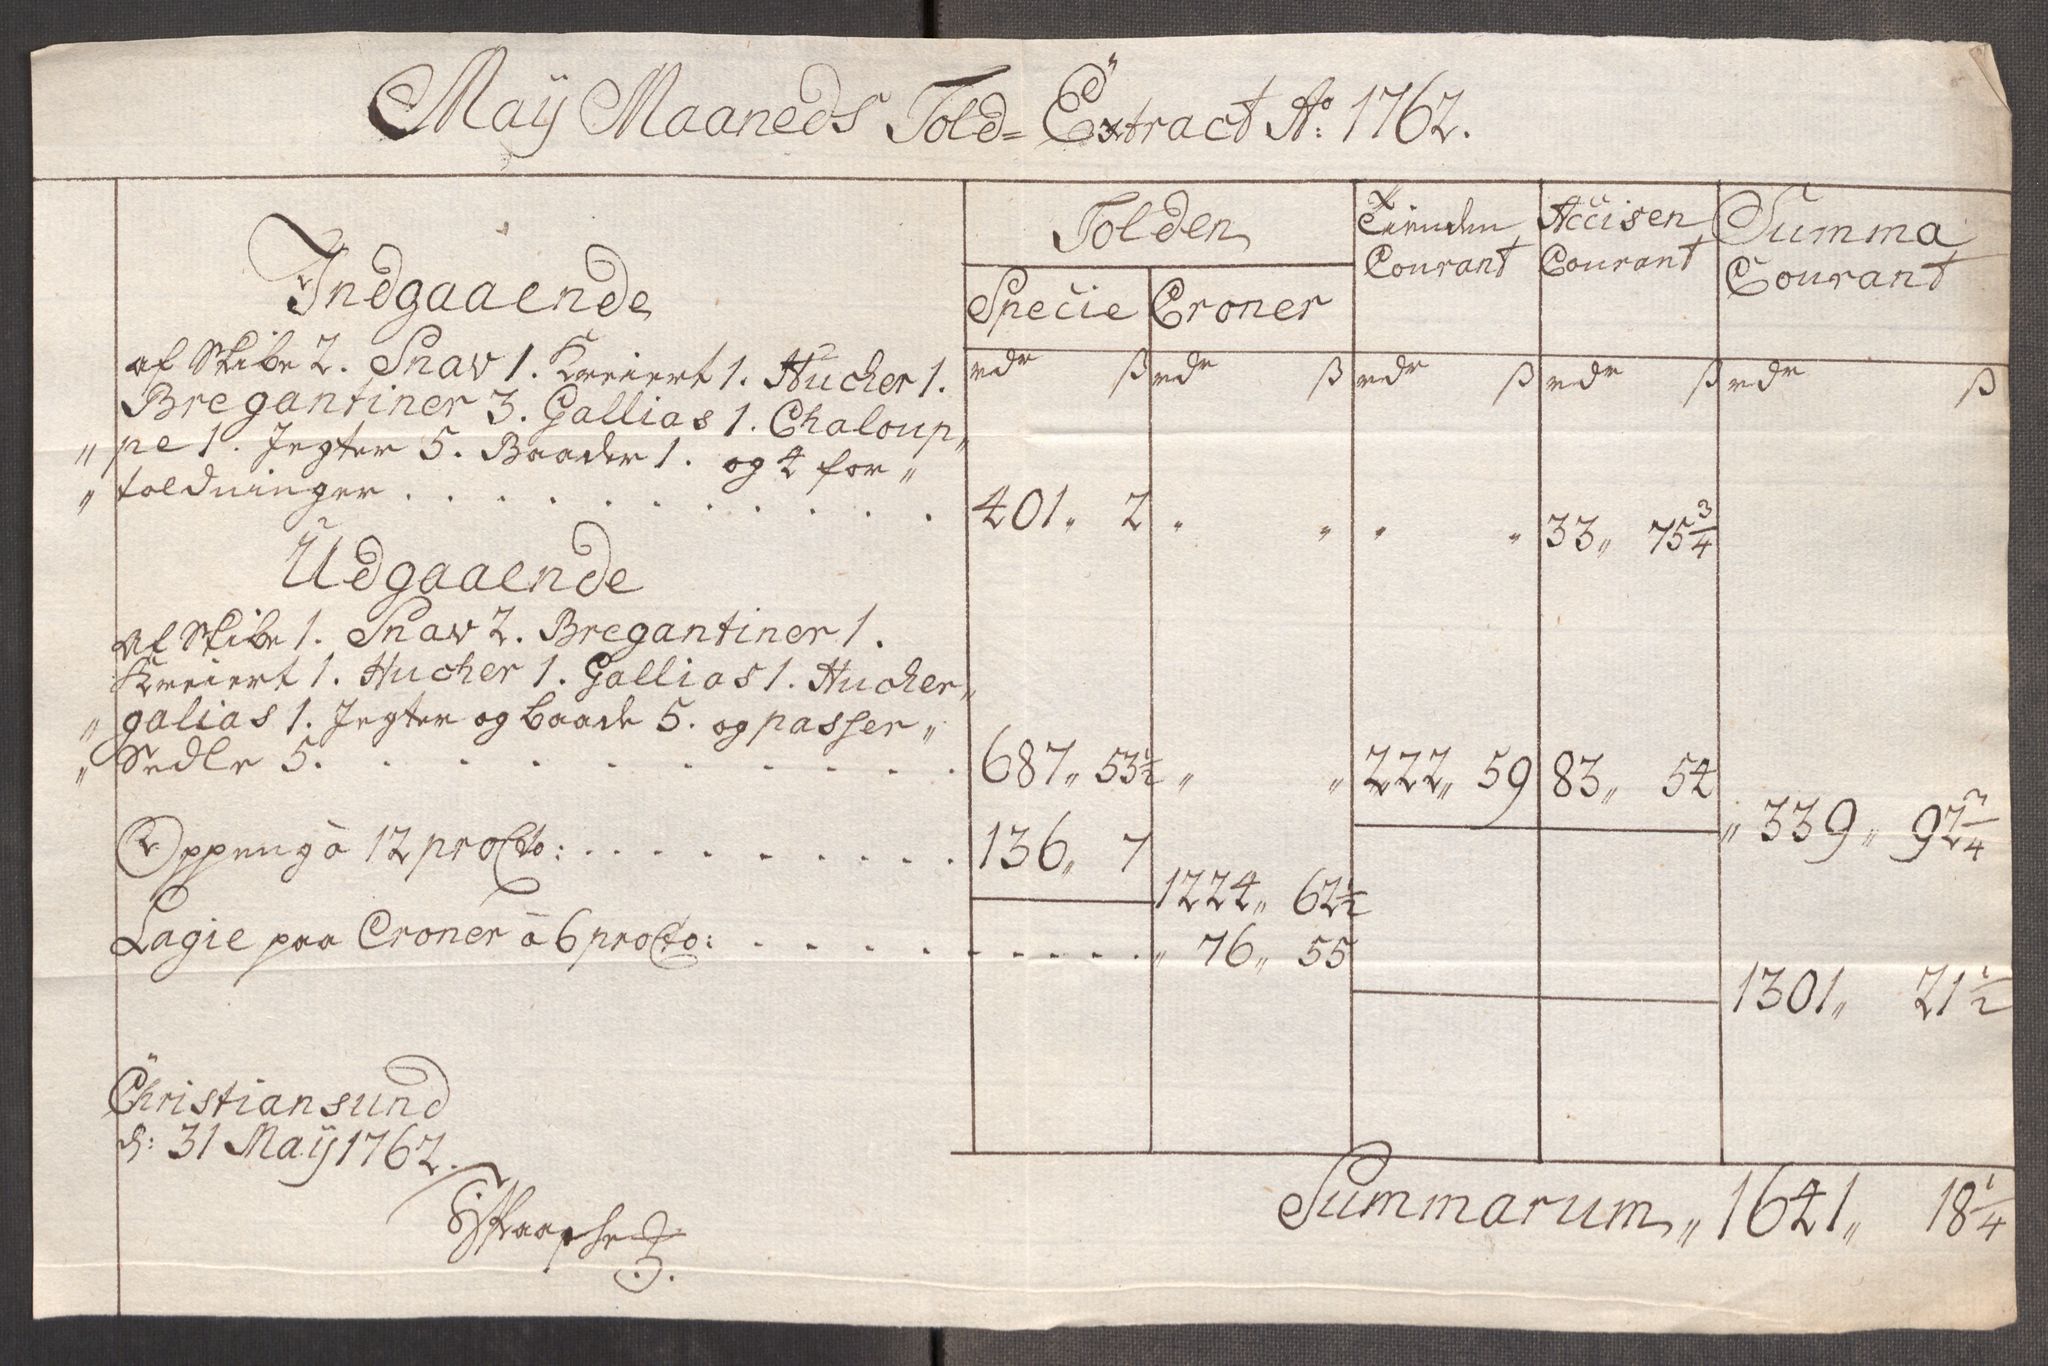 Maÿ Maaneds Told=Extract Aº: 1762.
Tolden Tienden Courant Accisen Courant Summa Courant
Specie Croner
rdr ß rdr ß rdr ß rdr ß rdr ß
Indgaaende
af Skibe 2. Snav 1. Kreiert 1. Hucher 1.
Bregantiner 3. Gallias 1. Chaloup„
„pe 1. Jegter 5. Baader 1. og 4 for„
„toldninger . . . . . . . . . 401„ 2 „ „ „ „ 33„ 75 3/4
Udgaaende
Af Skibe 1. Snav 2. Bregantiner 1.
Kreiert 1. Hucher 1. Gallias 1. Hucher„
„galias 1. Jegter og baade 5. og passer„
„Sedle 5. . . . . . . . . . 687„ 53 1/2 „ „ 222„ 59 83„ 54
„339„ 92 3/4
Oppeng à 12 proCto: . . . . . . . . . 136„ 7
1224„ 62 1/2
Lagie paa Croner à 6 proCto: . . . . . . . . . „76„ 55
1301„ 21 1/2
Christiansund
d: 31 Maÿ 1762.
Summarum„ 1641„ 18 1/4